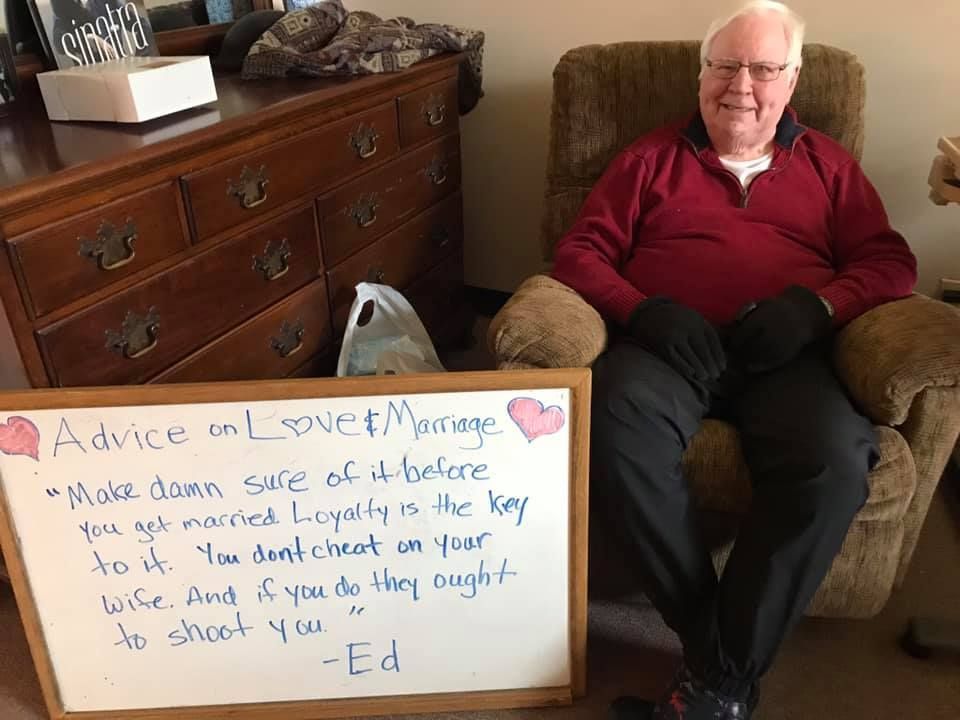 sinatra
Advice on Love & Marriage
"Make damn sure of it before
you get married. Loyalty is the key
to it. You dont cheat on your
wife. And if you do they ought
to shoot you."
-Ed